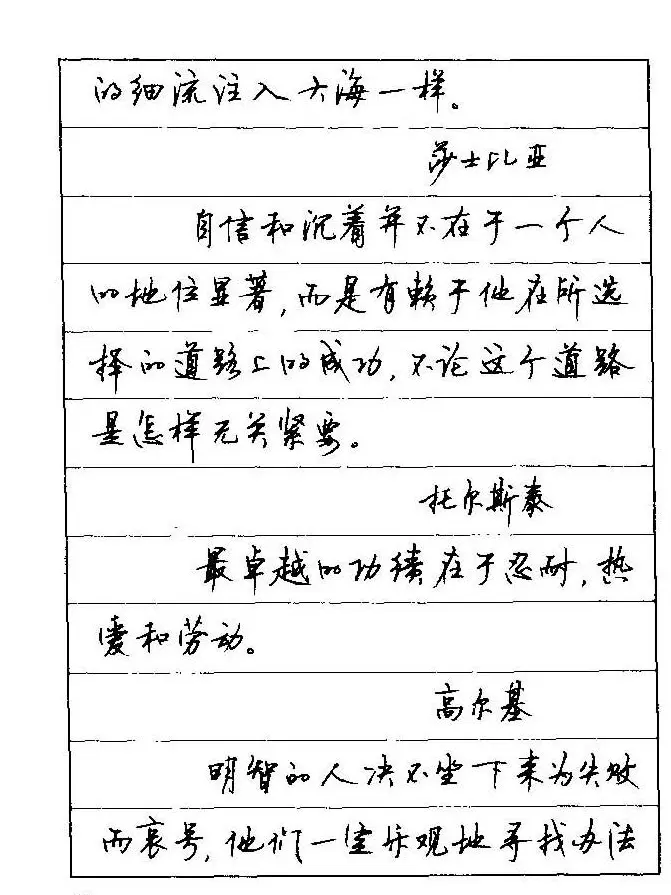 的细流注入大海一样。
莎士比亚
自信和沉着并不在于一个人
的地位显著,而是有赖于他在所选
择的道路上的成功,不论这个道路
是怎样无关紧要。
托尔斯泰
最卓越的功绩在于忍耐,热
爱和劳动。
高尔基
明智的人决不坐下来为失败
而哀号,他们一定乐观地寻找办法